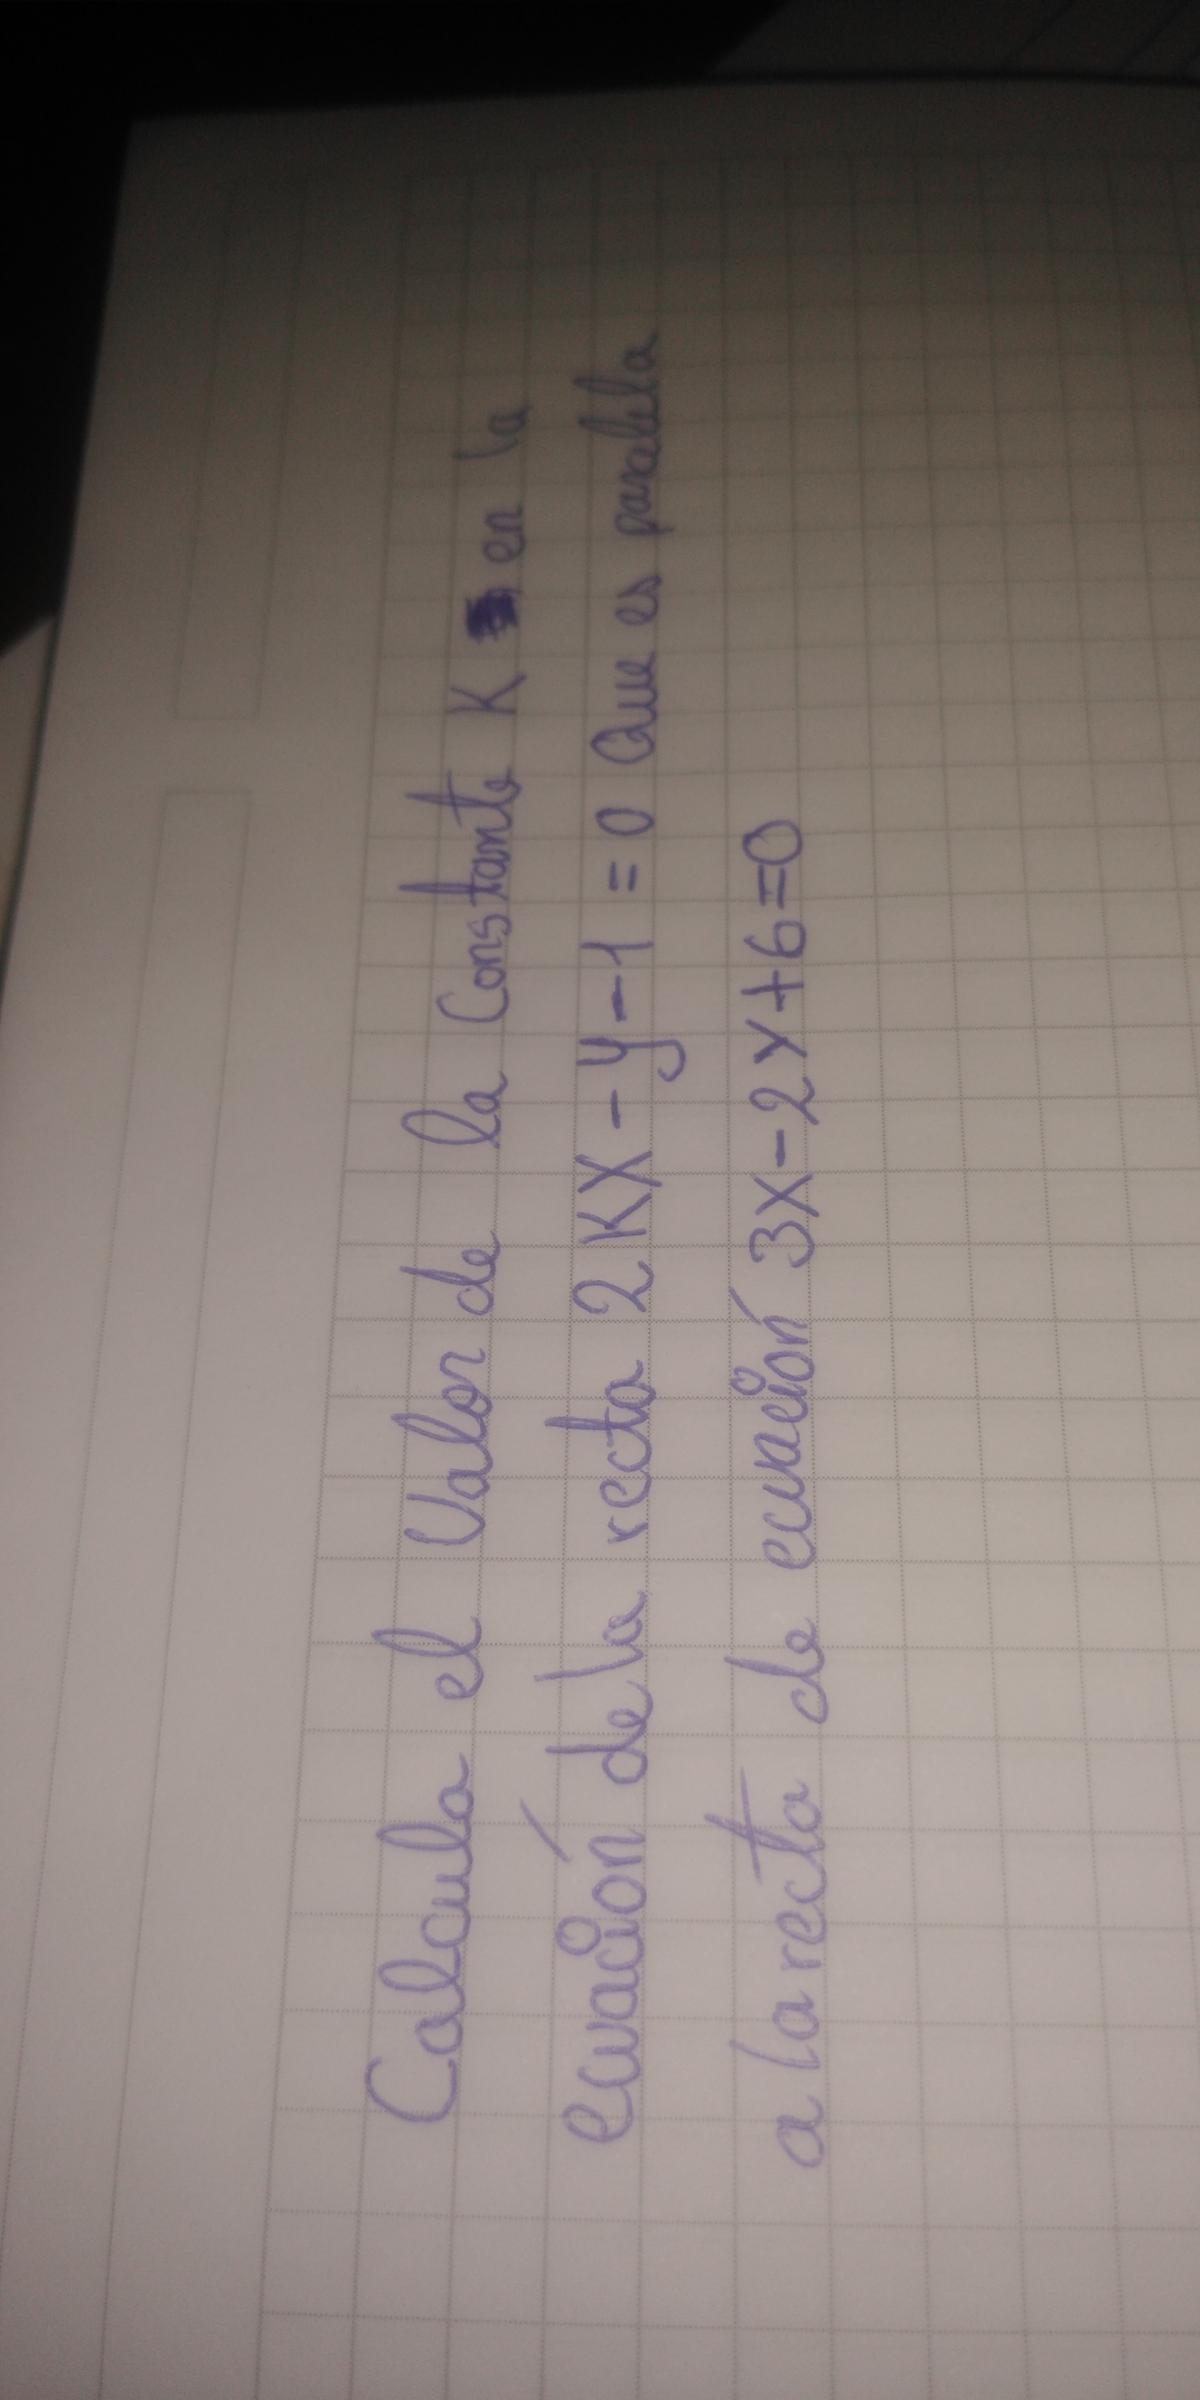 Calcula el Valor de la Constante K en la
ecuación de la recta 2KX-y-1=0 Que es paralela
a la recta de ecuación 3X-2y+6=0